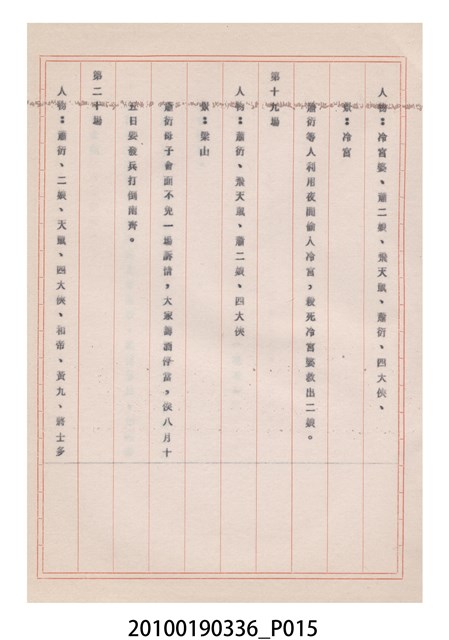 人物：冷宮婆、蕭二娘、飛天鼠、蕭衍、四大俠、
景：冷宮
蕭衍等人利用夜間偷入冷宮，救死冷宮婆救出二娘。
第十九場
人物：蕭衍、飛天鼠、蕭二娘、四大俠
景：梁山
蕭衍母子會面不免一場訴情，大家籌酒停當，俟八月十
五日要發兵打倒南齊。
第二十場
人物：蕭衍、二娘、天鼠、四大俠、和帝、黃九、將士多
20100190336_P015